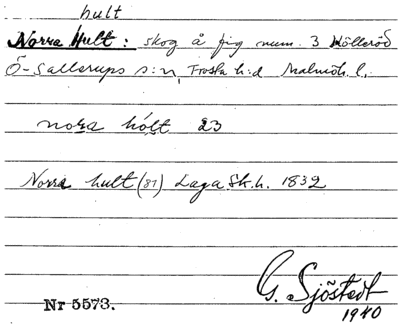 hult
Norra Hult: skog å fig num. 3 Mölleröd
Ö-Sallerups s:n, Frosta h:d Malmöh. l.
nora hólt 23
Norra hult (81) Laga Sk.h. 1832
G. Sjöstedt
1940
Nr 5573.